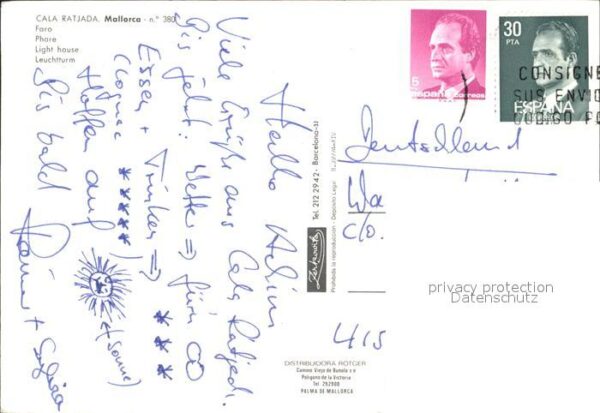 CALA RATJADA. Mallorca - n.° 380
Faro
Phare
Light house
Leuchtturm
Hallo
Viele Grüße aus Cala Ratjada.
Bis jetzt: Wetter => für ∞
Essen + Trinken => ***
(Cognac *****)
Hoffen auf
(Sonne)
Bis bald
Rainer +
5
españa correos
30
PTA
ESPAÑA
CORREOS
CONSIGNE
SUS ENVIO
CODIGO PO
Deutschland
c/o.
4/15
Tel. 212 29 42 - Barcelona
Prohibida la reproducción - Depósito Legal
DISTRIBUIDORA ROTGER
Camino Viejo de Buñola s n
Polígono de la Victoria
Tel. 292900
PALMA DE MALLORCA
privacy protection
Datenschutz